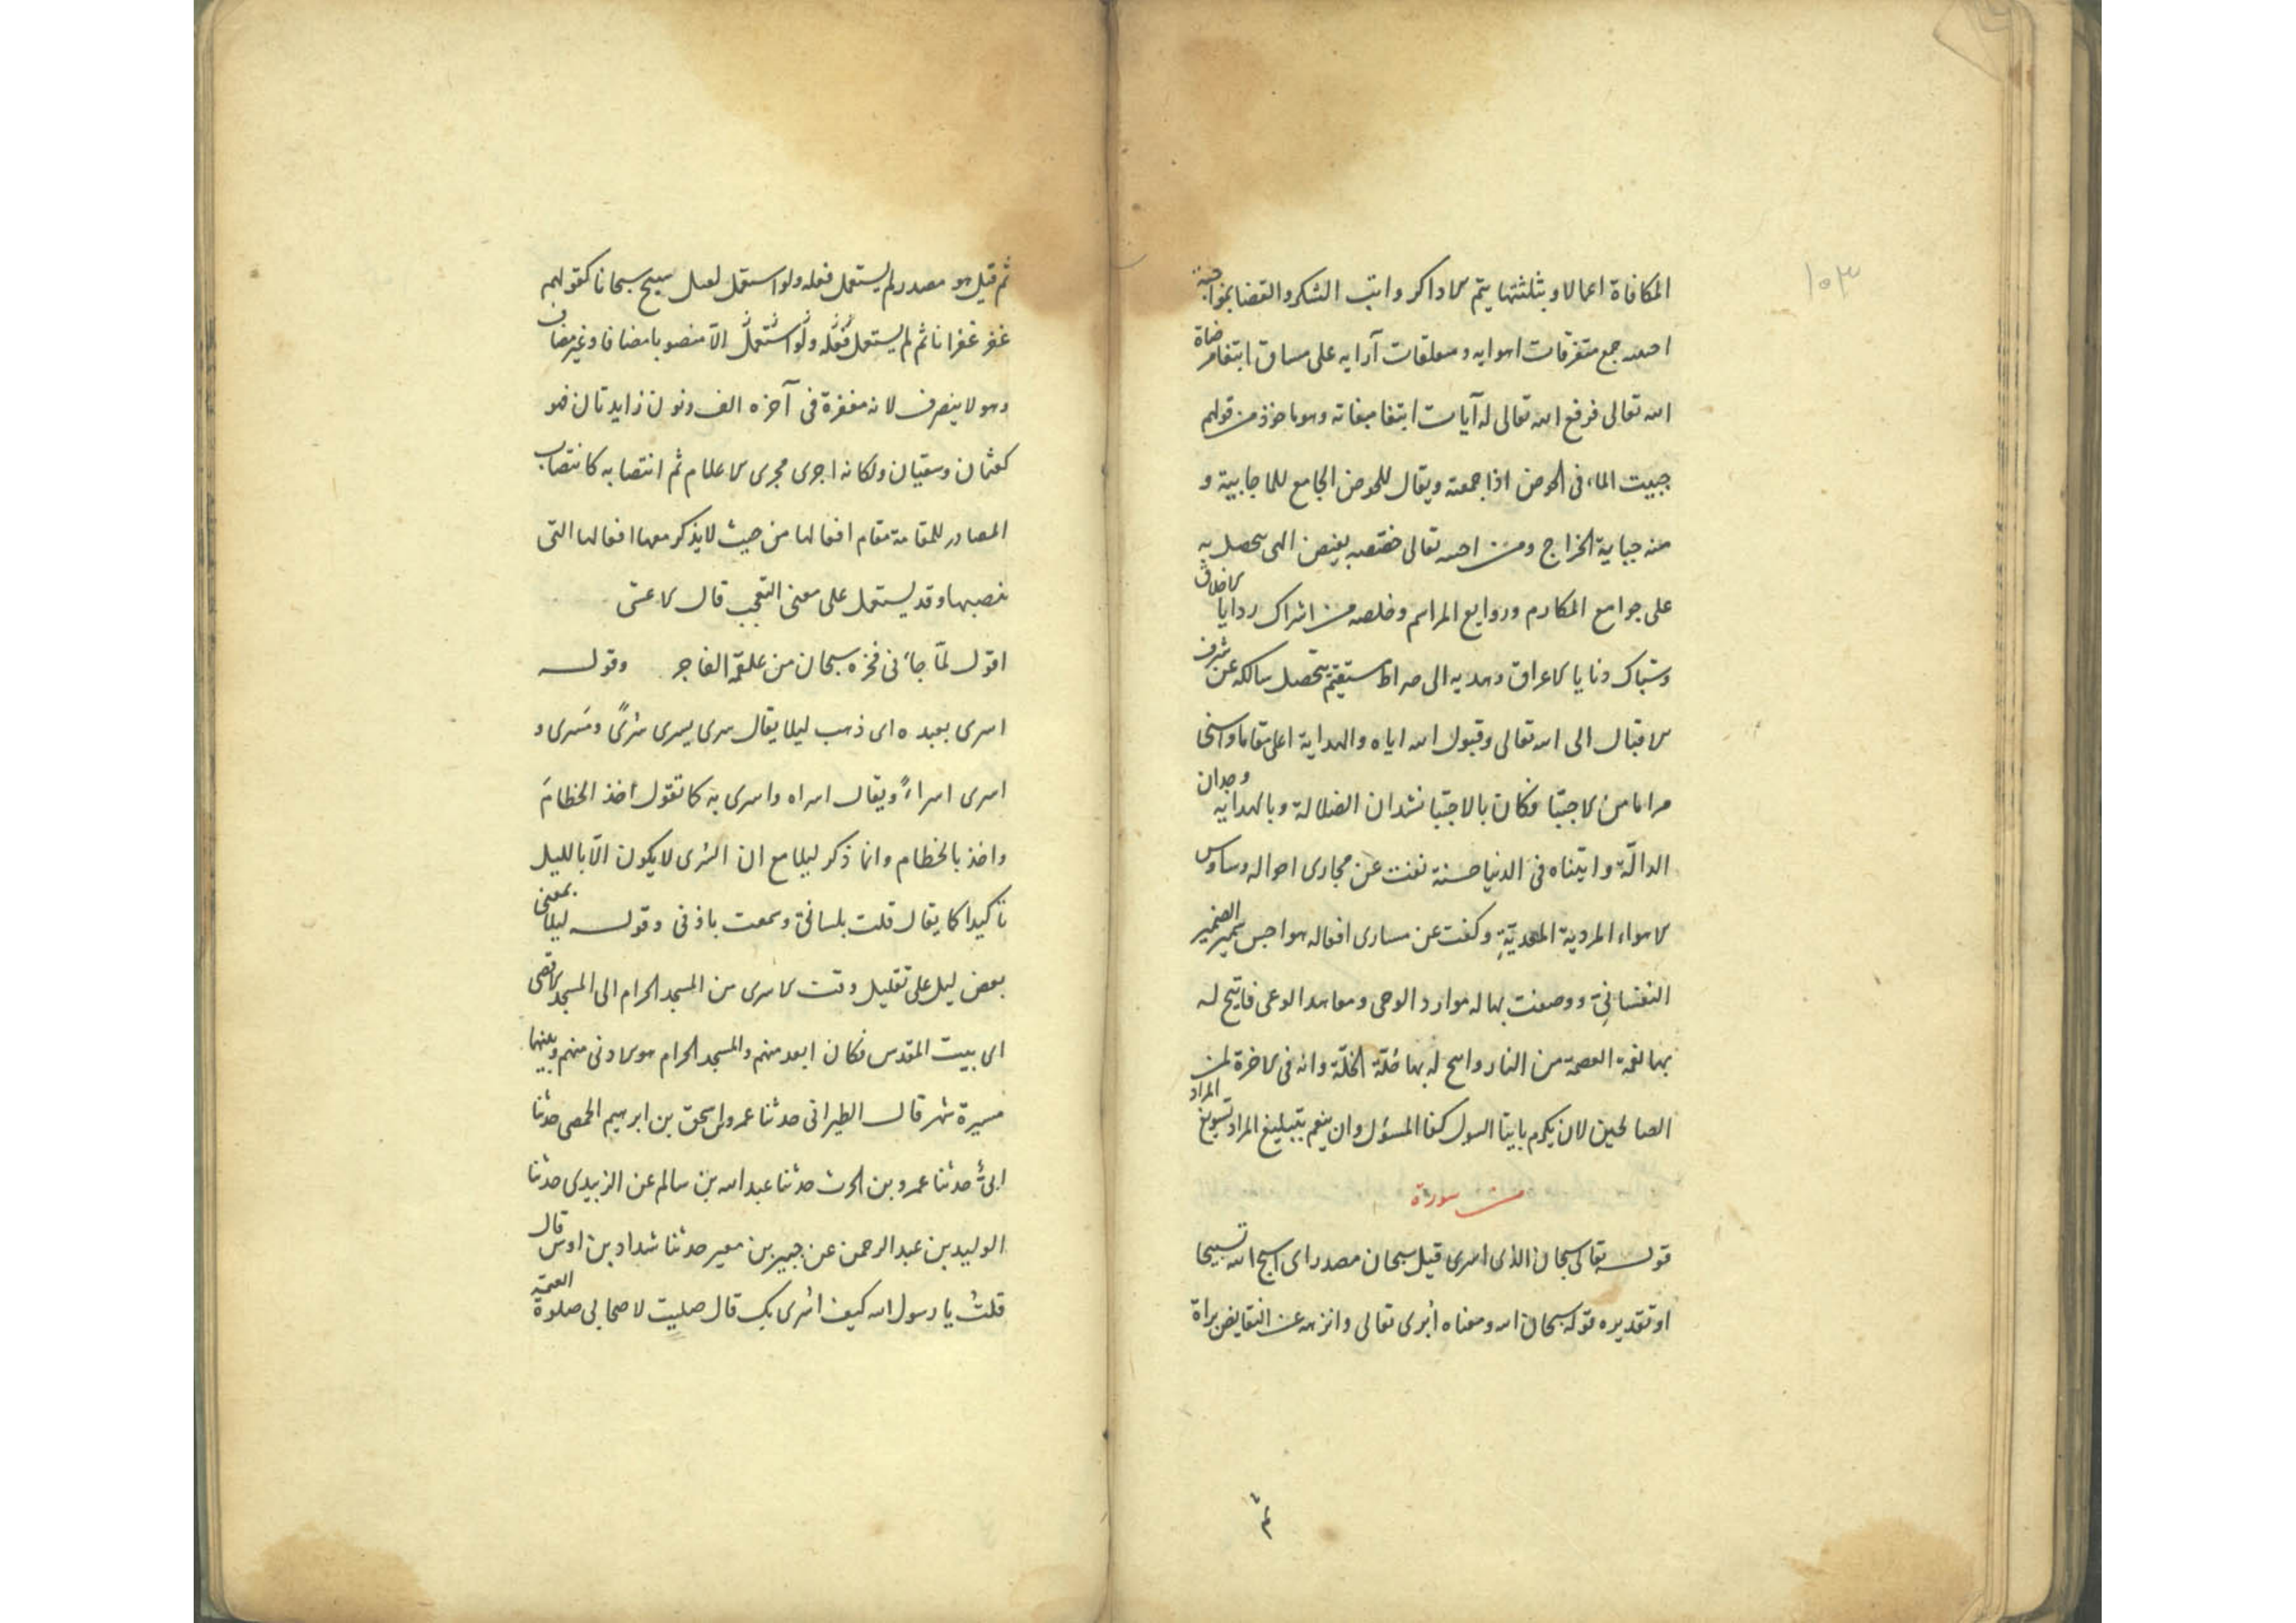 ١٠٣
المكافاة اعمالا وبثلثتها يتم الاداكر واتب الشكر والقضا بموا جبه
احسه جمع متفرقات اهوايه ومعلقات آرايه على مساق ابتغا مرضاة
الله تعالى فرفع الله تعالى له آيات ابتغا مبغاته وهو ماخوذ من قولهم
جبيت الماء فى الحوض اذا جمعته ويقال للحوض الجامع للما جابية و
منه جباية الخراج ومن احسه تعالى خصصه بفيض الهى يتحصل به
على جوامع المكارم وروايع المراسم وخلصه من اشراك ردايا الاخلاق
وشباك دنايا الاعراق وهديه الى صراط مستقيم يتحصل سالكه عن شرف
الاقبال الى الله تعالى وقبول الله اياه والهداية اعلى مقاما واسنى
مراما من الاجتبا فكان بالاجتبا نشدان الضالة وبالهداية وجدان
الدالة واتيناه فى الدنيا حسنة نفت عن مجارى احواله وساوس
الاهواء المردية المعدية وكفت عن مسارى افعاله هواجس الضمير
النفسانى ووصفت بها له موارد الوحى ومعاهد الوعى فاتيح له
بها نعمة العصمة من النار واسح له بها خلة الخلة وانه فى الاخرة لمن
الصالحين لان يكرم بايتا السول كفا المسؤل وان ينعم بتبليغ المراد تسويغ المراد
من سورة
قوله تعالى سبحان الذى اسرى قيل سبحان مصدر اى اسبح الله تسبيحا
او تقديره قوله سبحان الله ومعناه أبرى تعالى وانزهه عن النقايض براة
ثم
ثم قيل هو مصدر لم يستعمل فعله ولو استعمل لقيل سبح سبحانا كقولهم
غفر غفرانا ثم لم يستعمل فعله ولو استعمل الّا منصوبا مضافا وغير مضاف
وهو لا ينصرف لانه معرفة فى آخره الف ونون زايدتان فهو
كعثمان وسفيان ولكانه اجرى مجرى الاعلام ثم انتصابه كانتصاب
المصادر للقامة مقام افعالها من حيث لا يذكر معها افعالها التى
نصبها وقد يستعمل على معنى التعجب قال الاعشى
اقول لمّا جاءنى فخره سبحان من علقمة الفاجر وقوله
اسرى بعبده اى ذهب ليلا يقال سرى يسرى سُرًى ومَسرى و
اسرى اسراءً ويقال اسراه واسرى به كا تقول اخذ الخطامَ
واخذ بالخطام وانما ذكر ليلا مع ان السُرى لا يكون الّا بالليل
تأكيدا كا يقال قلت بلسانى وسمعت باذنى وقوله ليلا بمعنى
بعض ليل على تقليل وقت الاسرى من المسجد الحرام الى المسجد الاقصى
اى بيت المقدس فكان ابعد منهم والمسجد الحرام هو الادنى منهم وبينهما
مسيرة شهر قال الطبرانى حدثنا عمرو بن اسحق بن ابرهيم الحمصى حدثنا
ابى حدثنا عمرو بن الحرث حدثنا عبد الله بن سالم عن الزبيدى حدثنا
الوليد بن عبد الرحمن عن جبير بن معير حدثنا شداد بن اوس قال
قلتُ يا رسول الله كيف اسرى بك قال صليت لاصحابى صلوة العتمة